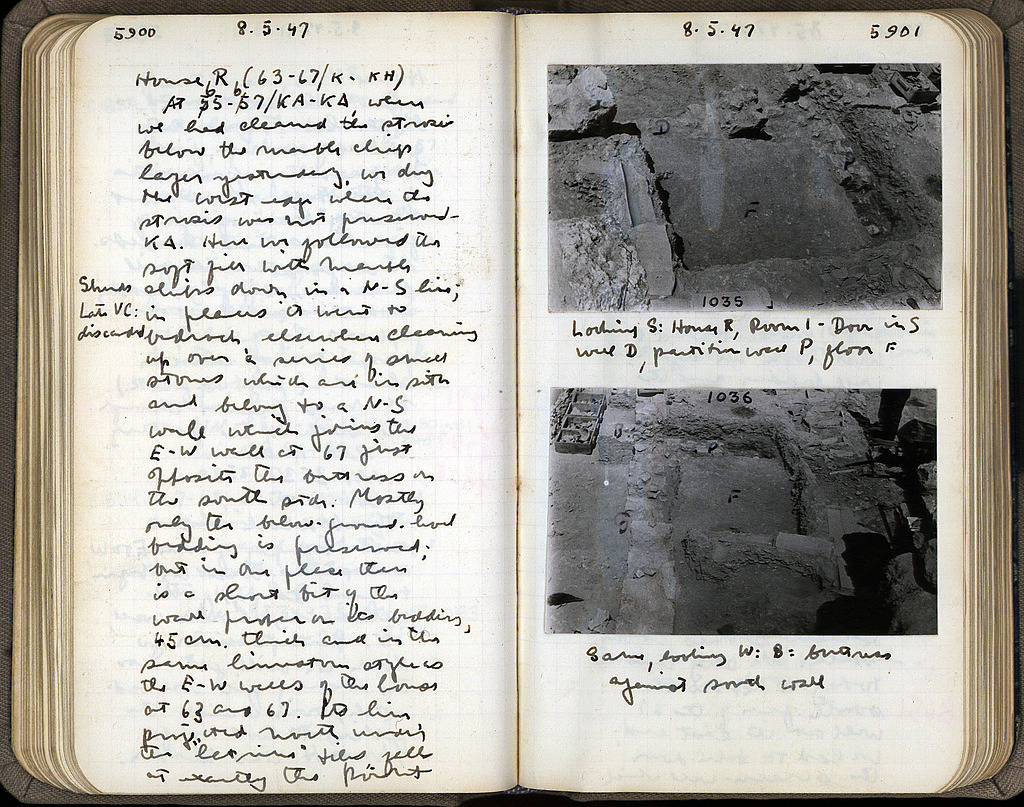 5900
8.5.47
House R (63-67/K-KH)
At 65-67/KA-KA, where
we had cleaned the strosis
below the marble chips
layer yesterday, we dug
the west edge where the
strosis was not preserved-
KA. Here we followed the
soft fill with marble
chips down in a N-S line;
Sherds
Late VC:
discarded
in places it went to
bedrock elsewhere cleaning
up over a series of small
stones which are in situ
and belong to a N-S
wall which joins the
E-W wall at 67 just
opposite the buttress on
the south side. Mostly
only the below-ground-level
bedding is preserved;
but in one place there
is a short bit of the
wall proper on its bedding,
45 cm. thick and in the
same limestone style as
the E-W walls of the house
at 63 and 67. Its line,
projected north under
the "latrine" tiles fell
at exactly the point
8.5.47
5901
D
F
1035
Looking S: House R, Room 1 - Door in S
wall D, partition wall P, floor F
1036
F
Same, looking W: B: buttress
against south wall